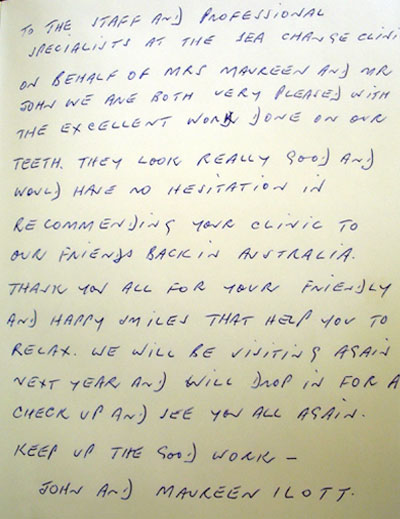 TO THE STAFF AND PROFESSIONAL
SPECIALISTS AT THE SEA CHANGE CLINI
ON BEHALF OF MRS MAUREEN AND MR
JOHN WE ARE BOTH VERY PLEASED WITH
THE EXCELLENT WORK DONE ON OUR
TEETH. THEY LOOK REALLY GOOD AND
WOULD HAVE NO HESITATION IN
RECOMMENDING YOUR CLINIC TO
OUR FRIENDS BACK IN AUSTRALIA.
THANK YOU ALL FOR YOUR FRIENDLY
AND HAPPY SMILES THAT HELP YOU TO
RELAX. WE WILL BE VISITING AGAIN
NEXT YEAR AND WILL DROP IN FOR A
CHECK UP AND SEE YOU ALL AGAIN.
KEEP UP THE GOOD WORK –
JOHN AND MAUREEN ILOTT.